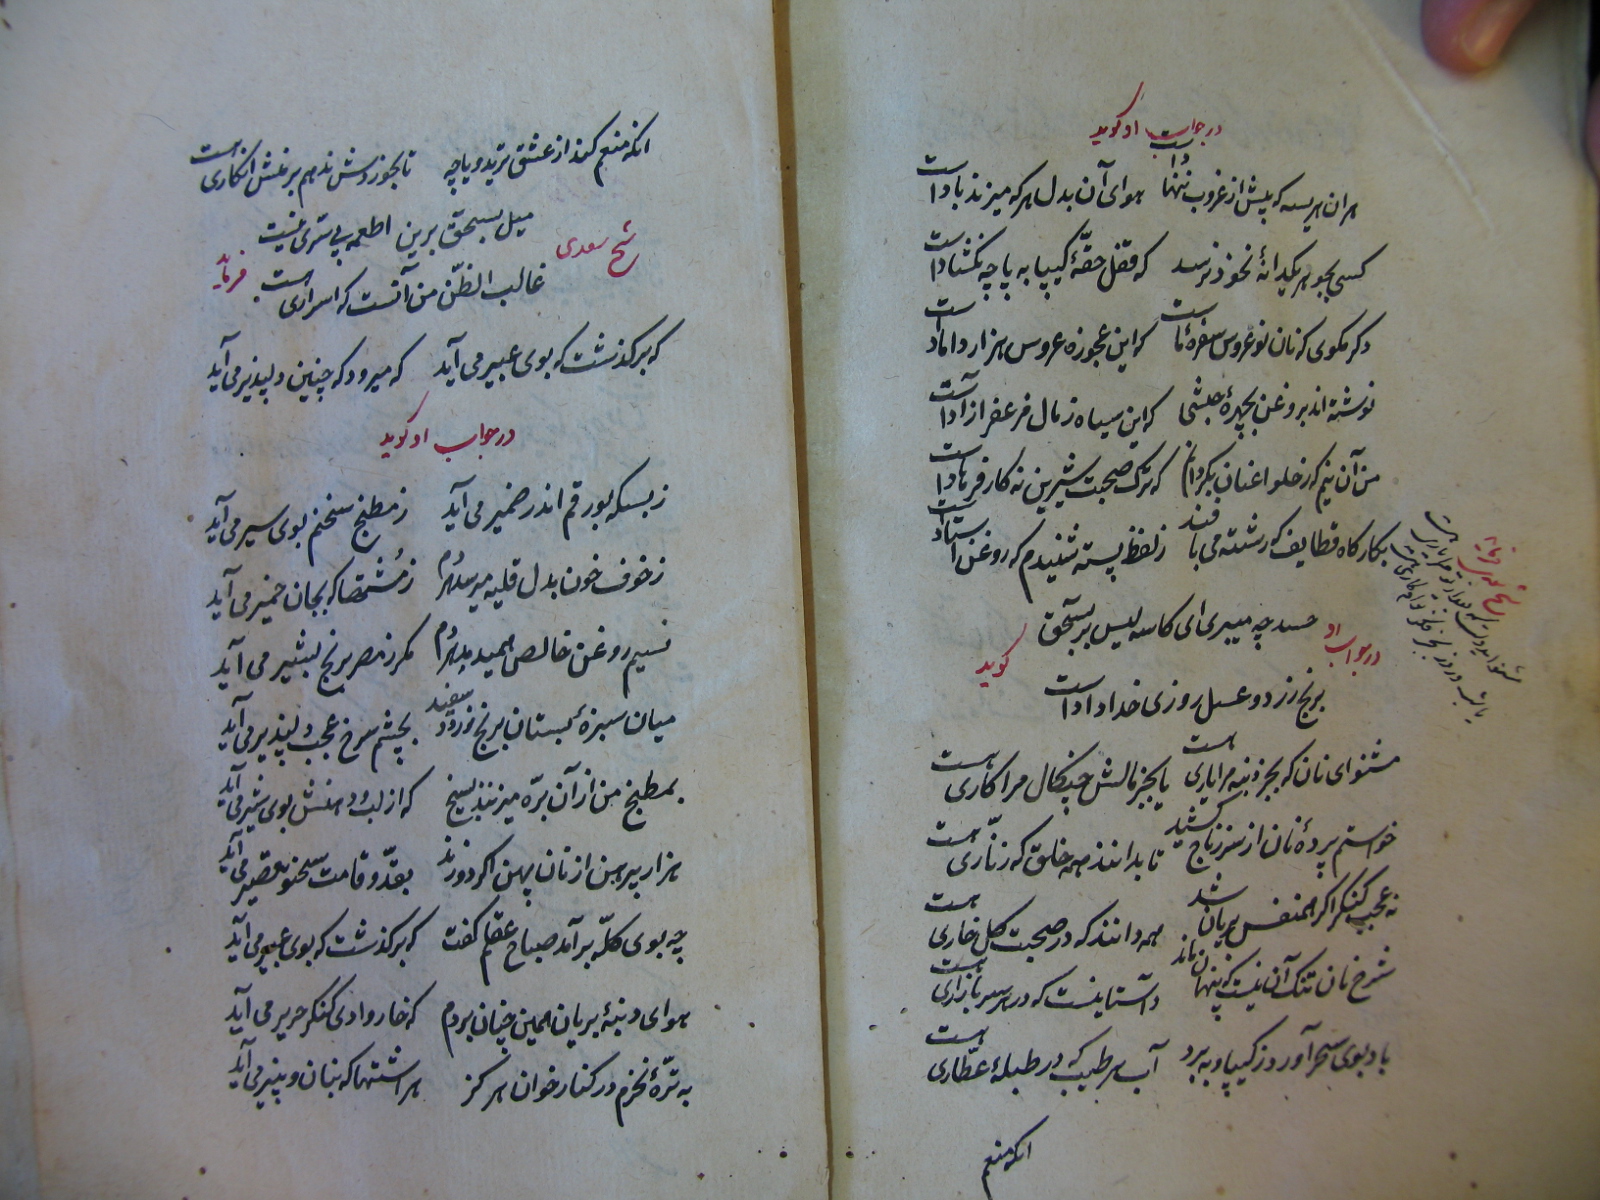 در جواب او گوید
هر آن هریسه که پیش از غروب بنهادست هوای آن بدل هر که میزند بادست
کسی بجوهر یکدانهٔ نخود نرسد که قفل حقهٔ کیپا به پاچه نگشادست
دگر مگوی که نان نو عروس سفرهٔ ماست که این عجوزه عروس هزار دامادست
نوشته‌اند بروغن بچهرهٔ حبشی که این سیاه ز مال مزعفر آزادست
من آن نیم که ز حلوا عنان بگردانم که ترک صحبت شیرین نه کار فرهادست
بکارگاه قطایف که رشته می‌بافند ز لفظ پسته شنیدم که روغن استادست
حسد چه میبری ای کاسه لیس بر بسحق
برنج زرد و عسل روزی خدا دادست
شیخ سعدی فرماید
مشنو ای دوست که غیر از تو مرا یاری هست
یا شب و روز بجز فکر توام کاری هست
در جواب او گوید
مشنو ای نان که بجز دنبه مرا یاری هست یا بجز مالش چنگال مرا کاری هست
خواستم پردهٔ نان از سر زناج کشید تا بدانند همه خلق که زناری هست
نه عجب کنگر اگر همنفس بریان شد همه دانند که در صحبت گل خاری هست
شرح نان تنک آن نیست که پنهان ماند داستانیست که در هر سر بازاری هست
باد بوی سحر آورد ز کیپا و ببرد آب هر طیب که در طبلهٔ عطاری هست
آنکه منعم
آنکه منعم کند از عشق ترید و پاچه تا نخورد وش ندهم بر منش انکاری هست
میل بسحق برین اطعمه بی سری نیست
غالب الظن من آنست که اسراری هست
شیخ سعدی فرماید
که برگذشت که بوی عبیر می آید که میرود که چنین دلپذیر می آید
در جواب او گوید
ز بسکه بورقم اندر ضمیر می آید ز مطبخ سخنم بوی سیر می آید
ز خوف خون بدل قلیه میرسد هر دم ز مشتها که بجان خمیر می آید
نسیم روغن خالص همیدمد هر دم مگر ز مصر برنج بشیر می آید
میان سبزهٔ بستان برنج زرد و سفید بچشم سرخ عجب دلپذیر می آید
بمطبخ من از آن بره میزنند بسیخ که از لب و دهنش بوی شیر می آید
هزار پیرهن از نان پهن اگر دوزند بقد و قامت سختو قصیر می آید
چه بوی کله برآمد صباح عقلم گفت که برگذشت که بوی عبیر می آید
هوای دنبهٔ بریان همین چنان بردم که خار وادی کنگر حریر می آید
به ترهٔ نخرم در کنار خوان هرگز هر اشتها که بنان و پنیر می آید